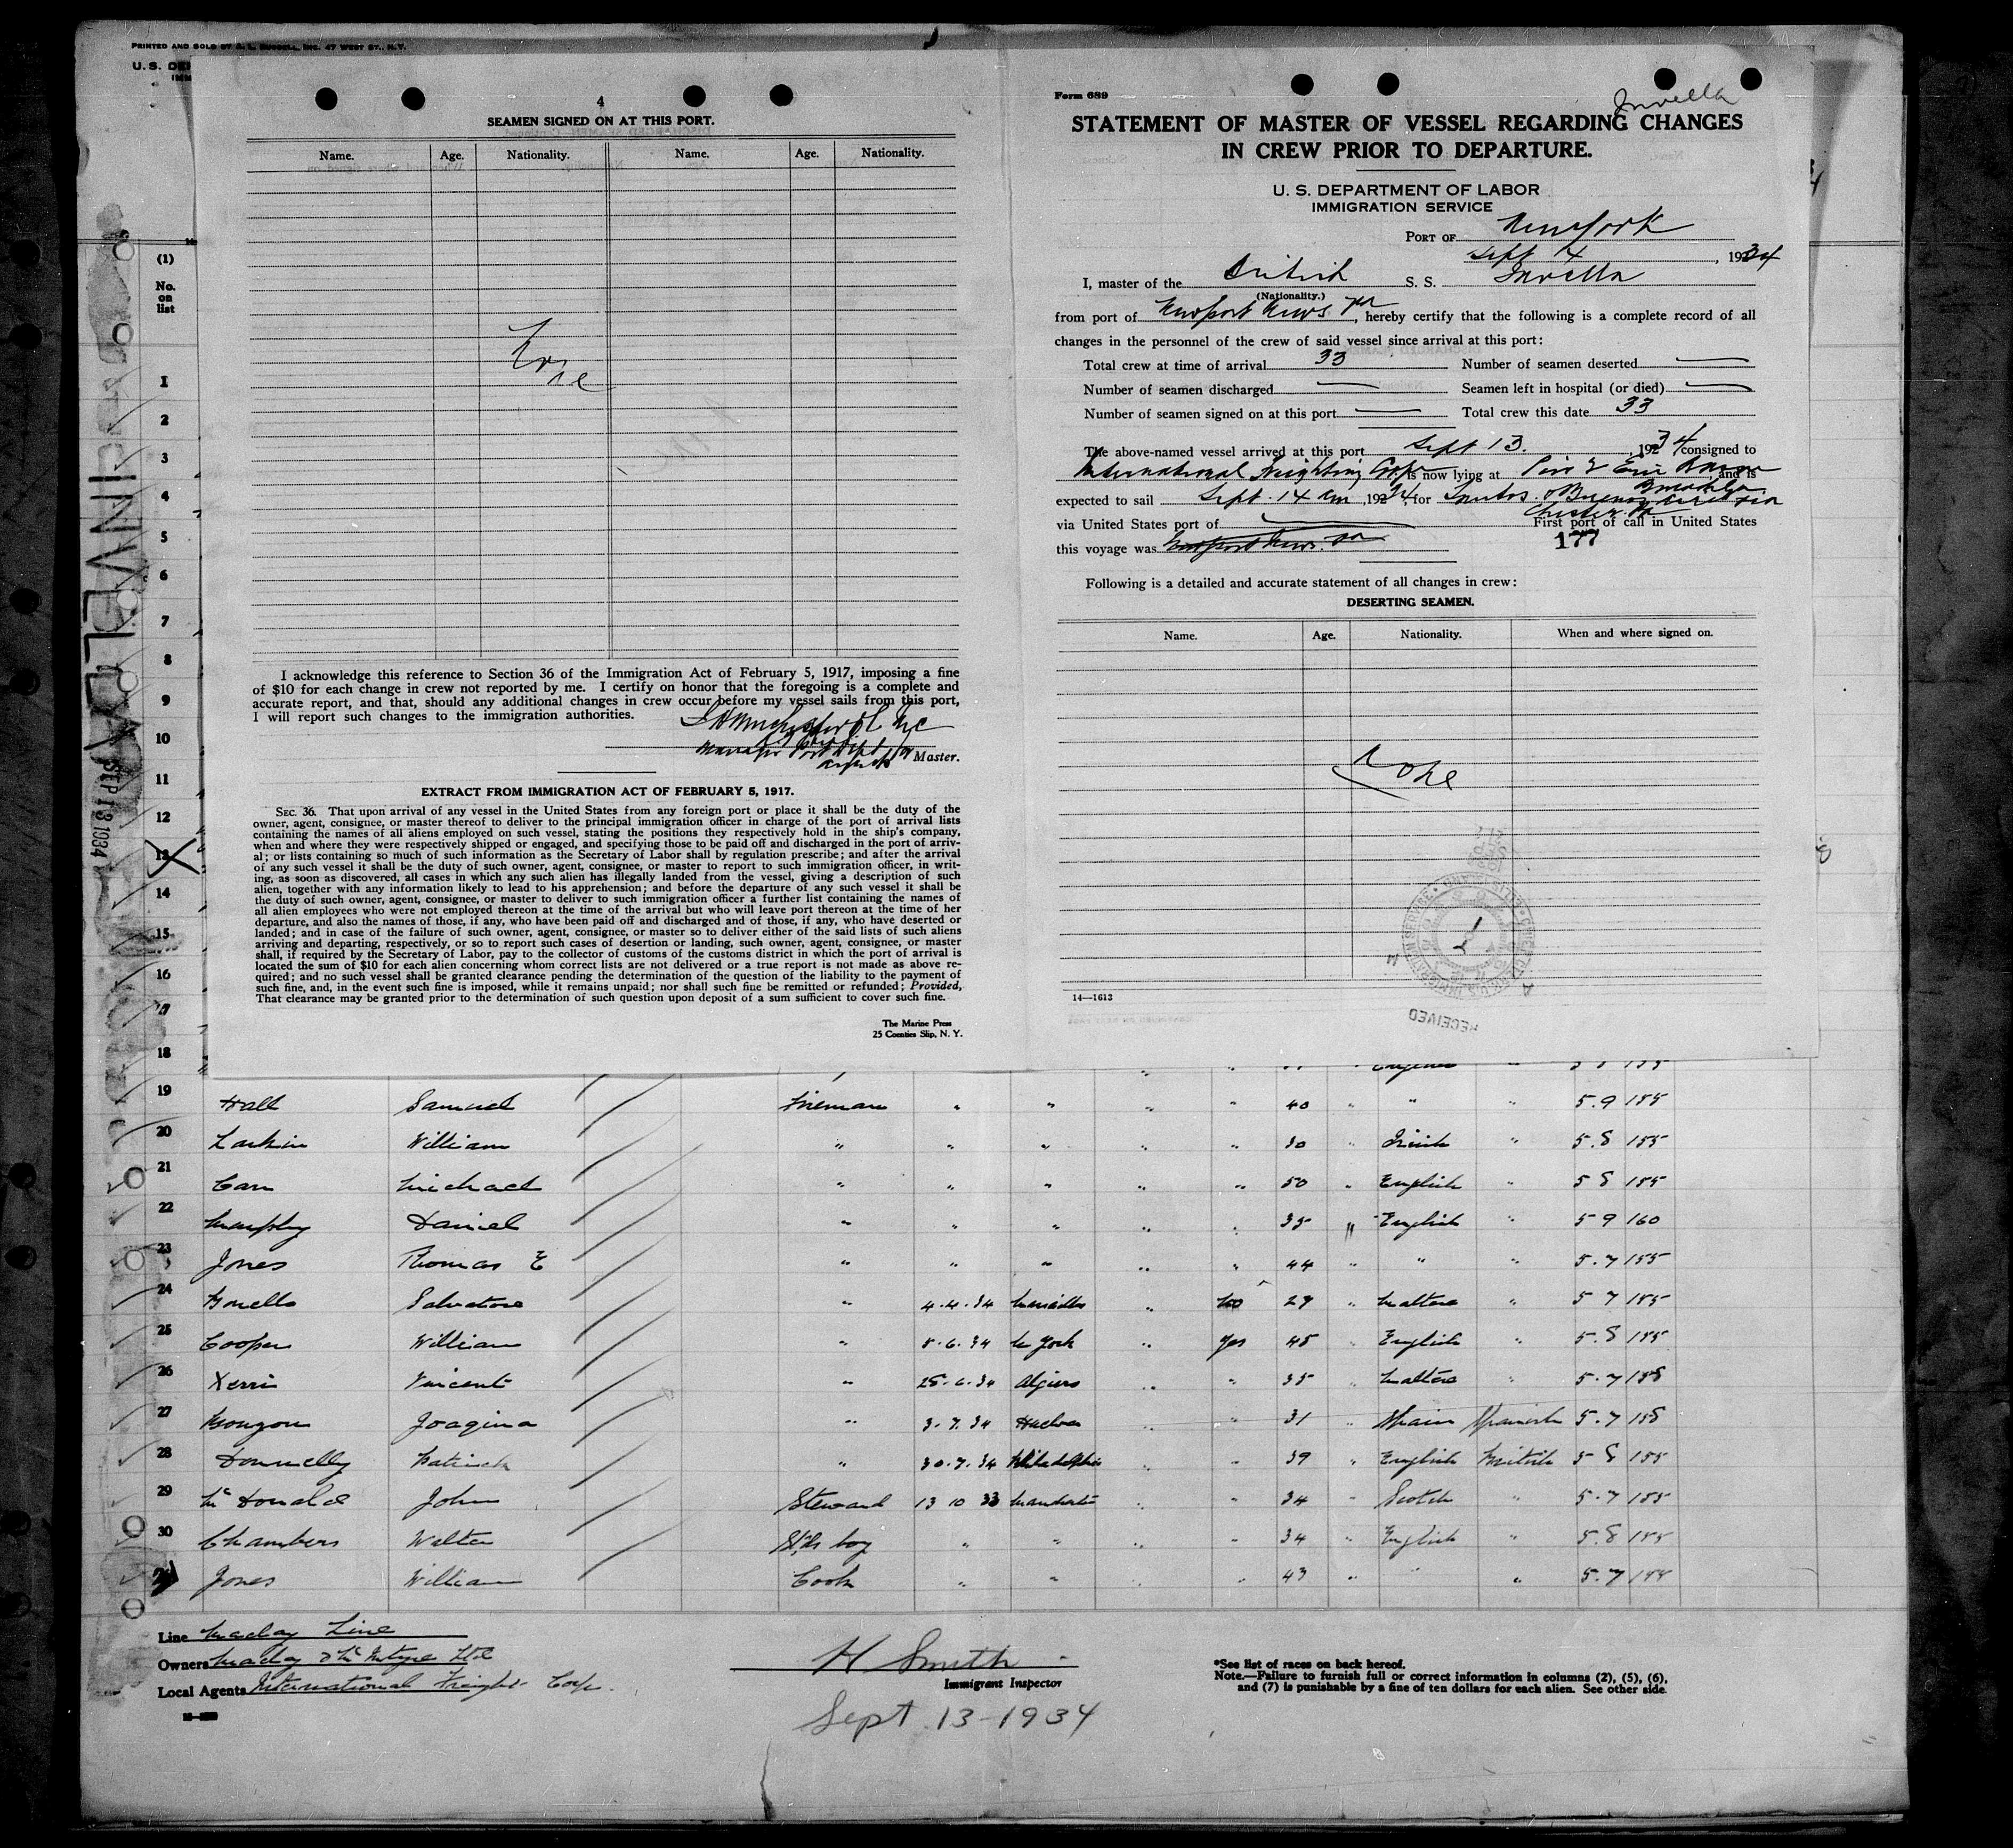 PRINTED AND SOLD BY A. L. RUSSELL, INC. 47 WEST ST., N.Y.
U. S. DE
IMM
(1)
No.
on
list
INVELLA SEP 13 1934
4
SEAMEN SIGNED ON AT THIS PORT.
Name. Age. Nationality. Name. Age. Nationality.
None
I acknowledge this reference to Section 36 of the Immigration Act of February 5, 1917, imposing a fine
of $10 for each change in crew not reported by me. I certify on honor that the foregoing is a complete and
accurate report, and that, should any additional changes in crew occur before my vessel sails from this port,
I will report such changes to the immigration authorities.
Master.
EXTRACT FROM IMMIGRATION ACT OF FEBRUARY 5, 1917.
SEC. 36. That upon arrival of any vessel in the United States from any foreign port or place it shall be the duty of the
owner, agent, consignee, or master thereof to deliver to the principal immigration officer in charge of the port of arrival lists
containing the names of all aliens employed on such vessel, stating the positions they respectively hold in the ship's company,
when and where they were respectively shipped or engaged, and specifying those to be paid off and discharged in the port of arriv-
al; or lists containing so much of such information as the Secretary of Labor shall by regulation prescribe; and after the arrival
of any such vessel it shall be the duty of such owner, agent, consignee, or master to report to such immigration officer, in writ-
ing, as soon as discovered, all cases in which any such alien has illegally landed from the vessel, giving a description of such
alien, together with any information likely to lead to his apprehension; and before the departure of any such vessel it shall be
the duty of such owner, agent, consignee, or master to deliver to such immigration officer a further list containing the names of
all alien employees who were not employed thereon at the time of the arrival but who will leave port thereon at the time of her
departure, and also the names of those, if any, who have been paid off and discharged and of those, if any, who have deserted or
landed; and in case of the failure of such owner, agent, consignee, or master so to deliver either of the said lists of such aliens
arriving and departing, respectively, or so to report such cases of desertion or landing, such owner, agent, consignee, or master
shall, if required by the Secretary of Labor, pay to the collector of customs of the customs district in which the port of arrival is
located the sum of $10 for each alien concerning whom correct lists are not delivered or a true report is not made as above re-
quired; and no such vessel shall be granted clearance pending the determination of the question of the liability to the payment of
such fine, and, in the event such fine is imposed, while it remains unpaid; nor shall such fine be remitted or refunded; Provided,
That clearance may be granted prior to the determination of such question upon deposit of a sum sufficient to cover such fine.
The Marine Press
25 Coenties Slip, N. Y.
Form 689
Invella
STATEMENT OF MASTER OF VESSEL REGARDING CHANGES
IN CREW PRIOR TO DEPARTURE.
U. S. DEPARTMENT OF LABOR
IMMIGRATION SERVICE
PORT OF New York
Sept 14, 1934
I, master of the British S. S. Invella
(Nationality.)
from port of Newport News Va, hereby certify that the following is a complete record of all
changes in the personnel of the crew of said vessel since arrival at this port:
Total crew at time of arrival 33 Number of seamen deserted —
Number of seamen discharged — Seamen left in hospital (or died) —
Number of seamen signed on at this port — Total crew this date 33
The above-named vessel arrived at this port Sept 13. , 1934 consigned to
International Freighting Corp is now lying at Pier 2 Erie Basin and is
Brooklyn
expected to sail Sept. 14 am, 1934, for Santos & Buenos Aires
Chester Pa
via United States port of — First port of call in United States
this voyage was Newport News. Va 177
Following is a detailed and accurate statement of all changes in crew:
DESERTING SEAMEN.
Name. Age. Nationality. When and where signed on.
None
RECEIVED
14—1613
1
2
3
4
5
6
7
8
9
10
11
12
13
14
15
16
17
18
19 Hall Samuel Fireman " " " " 40 " " " 5.9 155
20 Larkin William " " " " " 30 " Irish " 5.8 155
21 Carr Michael " " " " " 50 " English " 5 8 155
22 Murphy Daniel " " " " " 35 " English " 5 9 160
23 Jones Thomas E " " " " " 44 " " " 5.7 155
24 Salvatore " 4.4.34 Marseilles " No 27 " Maltese " 5 7 155
25 Cooper William " 8.6.34 N York " Yes 45 " English " 5.8 155
26 Xerri Vincent " 25.6.34 Algiers " " 35 " Maltese " 5.7 155
27 Joaquina " 3.7.34 Huelva " " 31 " Spain Spanish 5.7 155
28 Donnelly Patrick " 30.7.34 Philadelphia " " 39 " English British 5 8 155
29 McDonald John Steward 13 10 33 Manchester " " 34 " Scotch " 5.7 155
30 Chambers Walter boy " " " " 34 " English " 5.8 155
Jones William Cook " " " " 43 " " " 5.7 155
Line Maclay Line
Owners Maclay & McIntyre Ltd
Local Agents International Freight Corp.
H Smith
Immigrant Inspector
Sept 13-1934
*See list of races on back hereof.
Note.—Failure to furnish full or correct information in columns (2), (5), (6),
and (7) is punishable by a fine of ten dollars for each alien. See other side.